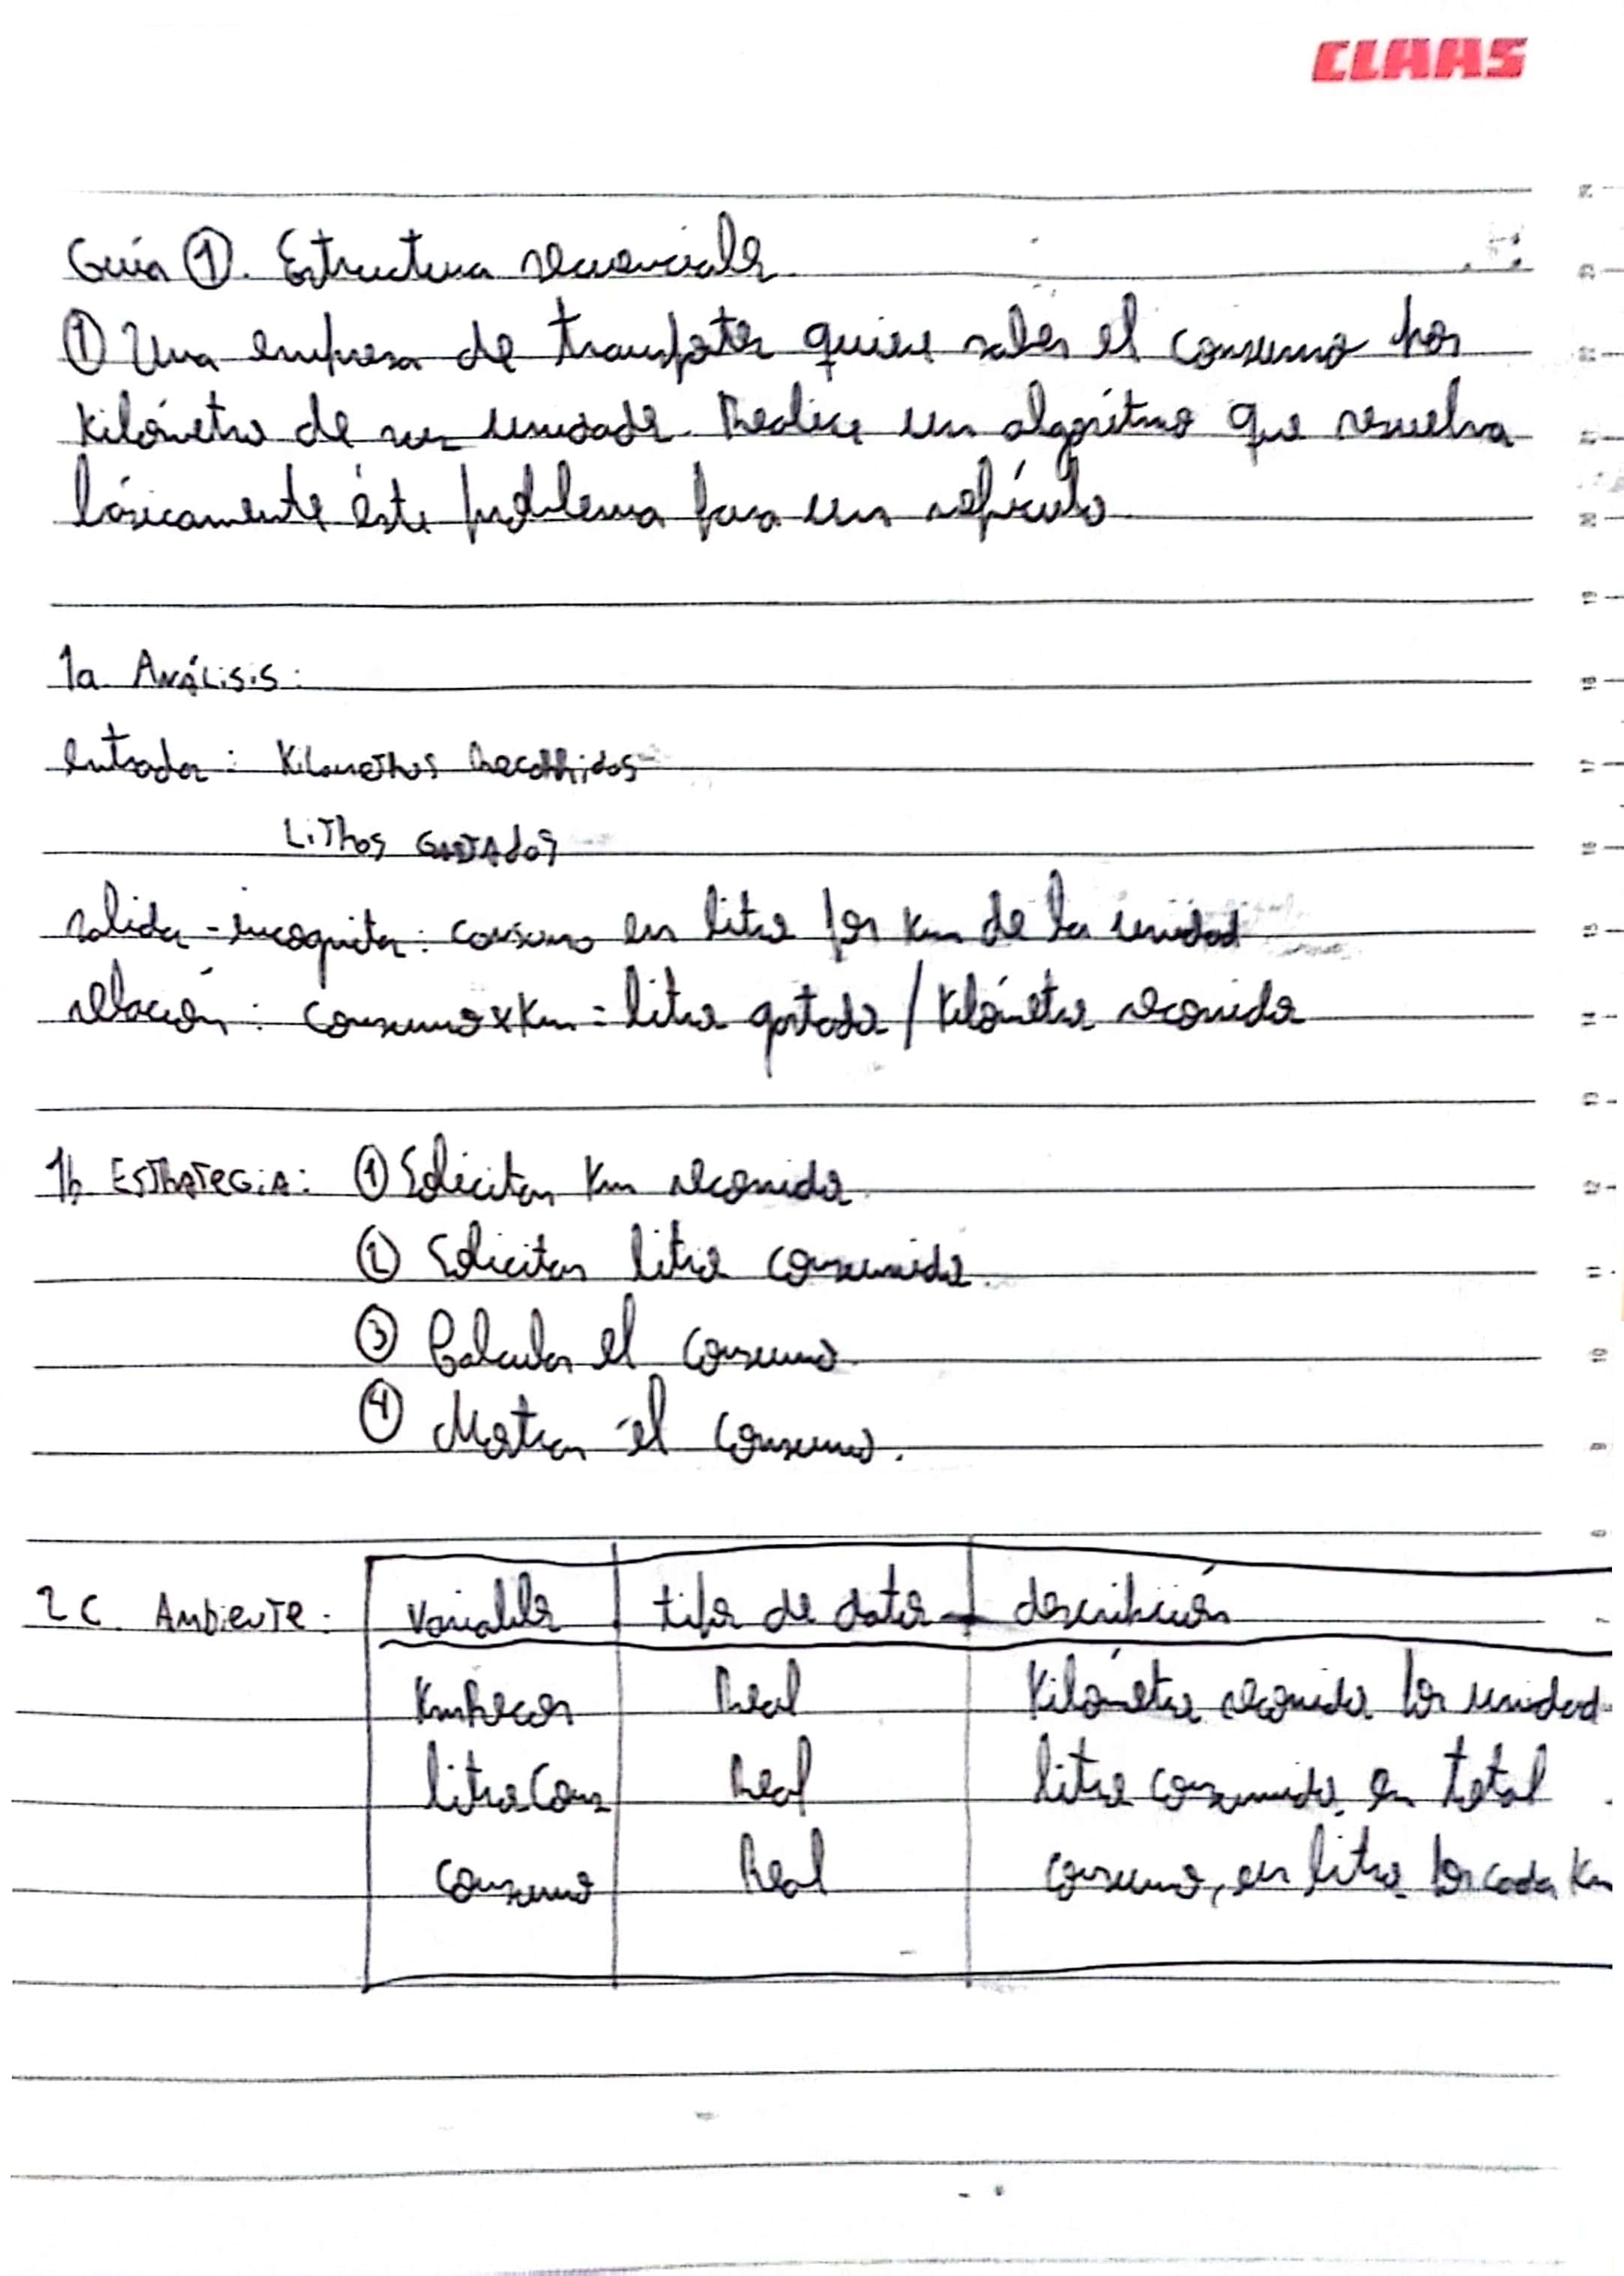 CLAAS
Guía ①. Estructuras secuenciales.
① Una empresa de transportes quiere saber el consumo por
kilómetro de sus unidades. Realice un algoritmo que resuelva
básicamente éste problema para un vehículo.
1a. Análisis:
entradas: Kilometros Recorridos
Litros Gastados
salida-incógnita: consumo en litros por km de la unidad
relación: consumoxKm = litros gastados / kilómetros recorridos
1b. Estrategia: ① Solicitar km recorridos.
② Solicitar litros consumidos.
③ Calcular el consumo.
④ Mostrar el consumo.
2c. Ambiente: variables tipos de datos descripción
KmRecor Real Kilómetros recorridos por unidad.
litrosCons Real litros consumidos en total.
consumo Real consumo, en litros por cada Km
24
23
22
21
20
19
18
17
16
15
14
13
12
11
10
9
8